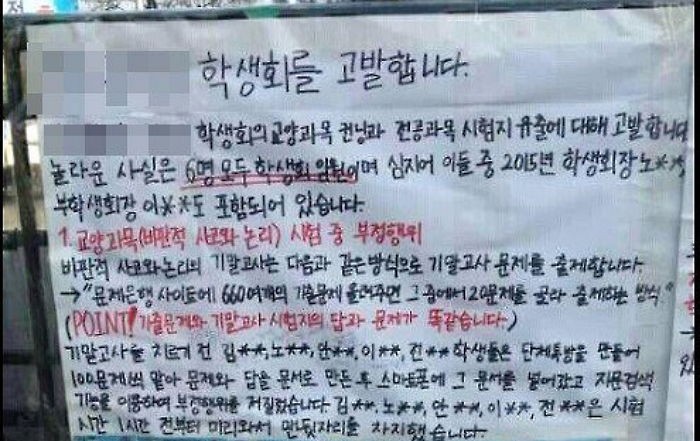 학생회를 고발합니다.
학생회의 교양과목 컨닝과 전공과목 시험지 유출에 대해 고발합니다
놀라운 사실은 6명 모두 학생회 임원이며 심지어 이들 중 2015년 학생회장 노**,
부학생회장 이**도 포함되어 있습니다.
1. 교양과목(비판적 사고와 논리) 시험 중 부정행위
비판적 사고와 논리의 기말고사는 다음과 같은 방식으로 기말고사 문제를 출제합니다.
→"문제은행 사이트에 660여개의 기출문제 올려주면 그 중에서 20문제를 골라 출제하는 방식."
(POINT! 기출문제와 기말고사 시험지의 답과 문제가 똑같습니다.)
기말고사를 치르기 전 김**, 노**, 안**, 이**, 전** 학생들은 단체톡방을 만들어
100문제씩 맡아 문제와 답을 문서로 만든 후 스마트폰에 그 문서를 넣어갔고 지문검색
기능을 이용하여 부정행위를 저질렀습니다 김**, 노**, 안**, 이**, 전**은 시험
시간 1시간 전부터 미리와서 맨뒷자리를 차지했습니다